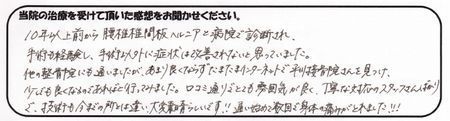 当院の治療を受けて頂いた感想をお聞かせください。
10年以上前から腰椎椎間板ヘルニアと病院で診断され、
手術も経験し、手術以外に症状は改善されないと思っていました。
他の整骨院にも通いましたが、あまり良くならずたまたまインターネットで平川接骨院さんを見つけ、
少しでも良くなるのであればと行ってみました。口コミ通りとても雰囲気が良く、丁寧な対応のスタッフさんばかり
で、技術も今までの所とは違い大変素晴らしいです!!通い始めて数回で身体の痛みがとれました!!!